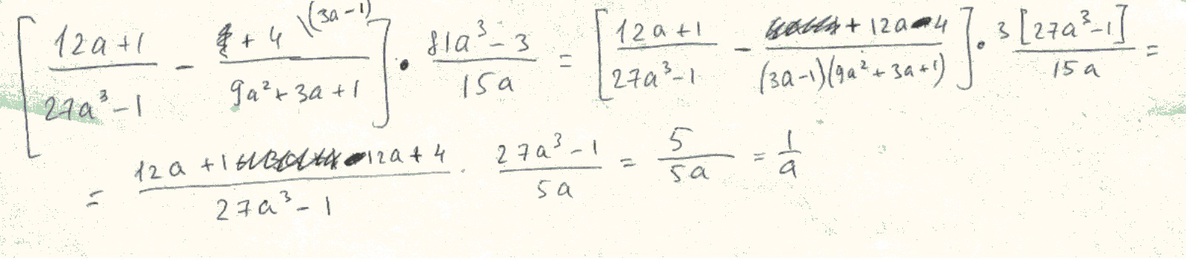 [ (12a+1)/(27a³-1) - (+ 4 \(3a-1))/(9a²+3a+1) ] · (81a³-3)/(15a) = [ (12a+1)/(27a³-1) - (+ 12a-4)/((3a-1)(9a²+3a+1)) ] · 3[27a³-1]/(15a) =
= (12a+1 -12a+4)/(27a³-1) · (27a³-1)/(5a) = 5/(5a) = 1/a